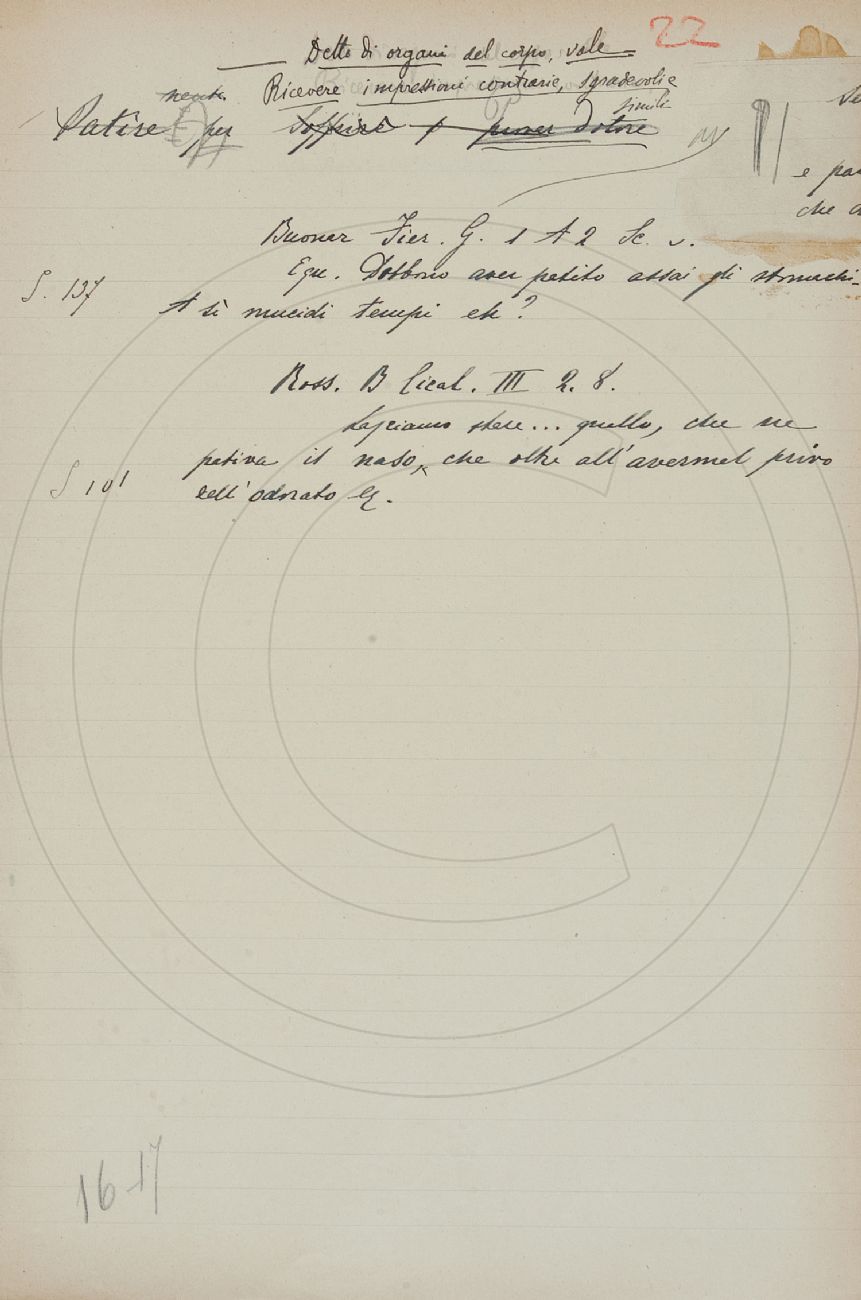 Detto di organi del corpo, vale 22
Ricevere impressioni contrarie, sgradevoli e
simili
neutr.
Patire per Soffrire provar dolore
e
che
Buonar. Fier. G. 1 A 2 Sc. v.
Equ. Debbono aver patito assai gli stomachi
S. 137
A sì mucidi tempi eh?
Ross. B Lical. III 2. 8.
Lasciamo stare... quello, che ne
pativa il naso, che oltre all'avermel privo
S 101
dell'odorato Ec.
16-17